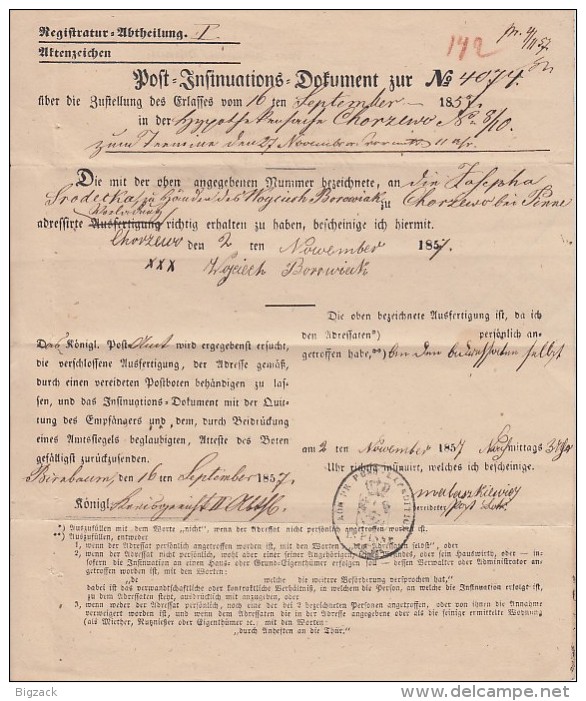 Registratur-Abtheilung. I
Aktenzeichen
142
Post-Insinuations-Dokument zur № 4074.
über die Zustellung des Erlasses vom 16 ten September 1857.
in der Hypothekensache Chorzewo No 8/10.
zum Termine den 27 November vormitt 11 Uhr.
Die mit der oben angegebenen Nummer bezeichnete, an die Josepha
Srodecka zu Händen des Woyciech Borowiak zu Chorzewo bei Pinne
Vorladung
adressirte Ausfertigung richtig erhalten zu haben, bescheinige ich hiermit.
Chorzewo den 2 ten November 1857.
xxx
Woyciech Borowiak
Die oben bezeichnete Ausfertigung ist, da ich
den Adressaten*) persönlich an-
getroffen habe,**) an den Adressaten selbst
Das Königl. Post-Amt wird ergebenst ersucht,
die verschlossene Ausfertigung, der Adresse gemäß,
durch einen vereideten Postboten behändigen zu las-
sen, und das Insinuations-Dokument mit der Quit-
tung des Empfängers und dem, durch Beidrückung
eines Amtssiegels beglaubigten, Atteste des Boten
gefälligst zurückzusenden.
am 2 ten November 1857 Nachmittags 3 Uhr
Uhr richtig insinuirt, welches ich bescheinige.
Birnbaum, den 16 ten September 1857.
Königl. Kreisgericht II Abth.
vereideter Post
*) Auszufüllen mit dem Worte „nicht", wenn der Adressat nicht persönlich angetroffen worden ist.
**) Auszufüllen, entweder
1, wenn der Adressat persönlich angetroffen worden ist, mit den Worten „an Adressaten selbst", oder
2, wenn der Adressat nicht persönlich, wohl aber einer seiner Angehörigen, oder – in-
sofern die Insinuation an einen Haus- oder Grund-Eigenthümer erfolgen soll – dessen Verwalter oder Administrator an-
getroffen worden ist, mit den Worten:
„de welche die weitere Beförderung versprochen hat,"
dabei ist das verwandtschaftliche oder kontraktliche Verhältniß, in welchem die Person, an welche die Insinuation erfolgt ist,
zu dem Adressaten steht, ausdrücklich mit anzugeben, oder
3, wenn weder der Adressat persönlich, noch eine der bei 2 bezeichneten Personen angetroffen, oder von ihnen die Annahme
verweigert worden ist, und wenn dem Adressaten die in der Adresse angegebene oder als die seinige ermittelte Wohnung
(als Miether, Nutznießer oder Eigenthümer ec.) mit den Worten:
„durch Anheften an die Thür."
Bigzack
www.delcampe.net